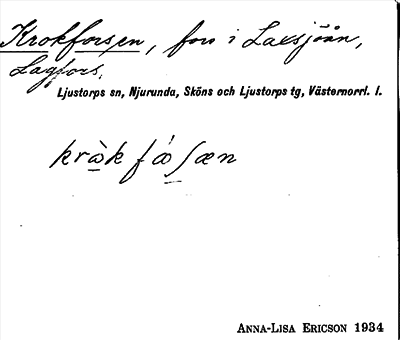 Krokforsen, fors i Laxsjöån,
Lagfors.
Ljustorps sn, Njurunda, Sköns och Ljustorps tg, Västernorrl. l.
kròk fǽʃæn
ANNA-LISA ERICSON 1934